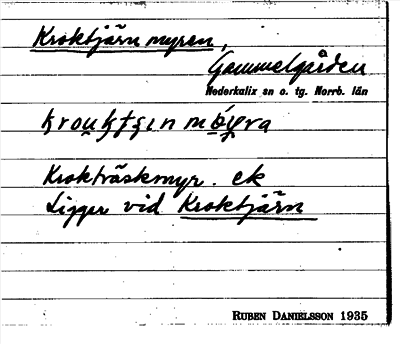 Kroktjärnmyren,
Gammelgården
Nederkalix sn o. tg. Norrb. län
Krokträskmyr. ek
Ligger vid Kroktjärn
RUBEN DANIELSSON 1935